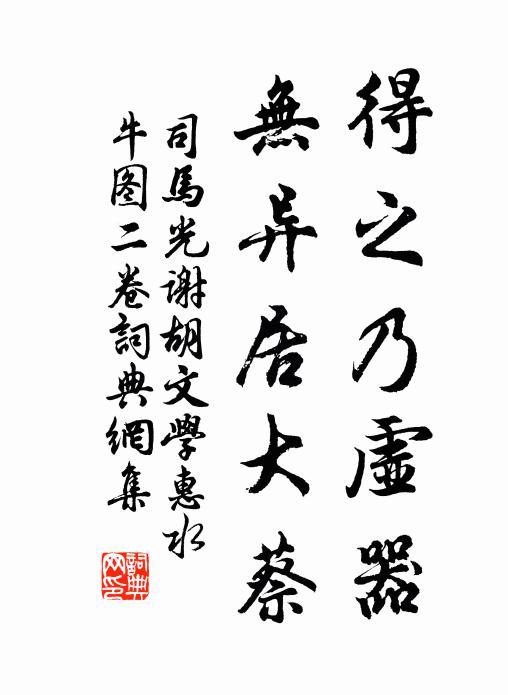 得之乃虛器
無异居大蔡
司馬光谢胡文學惠水
牛图二卷詞典網集
詞典
网印